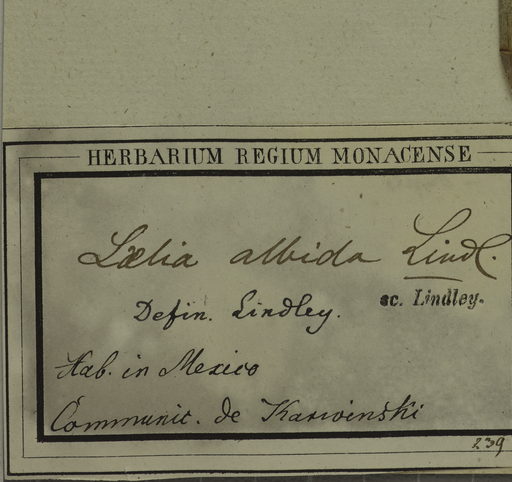 HERBARIUM REGIUM MONACENSE
Lælia albida Lindl.
sc. Lindley.
Defin. Lindley.
Hab. in Mexico
Communic. de Karwinski
239